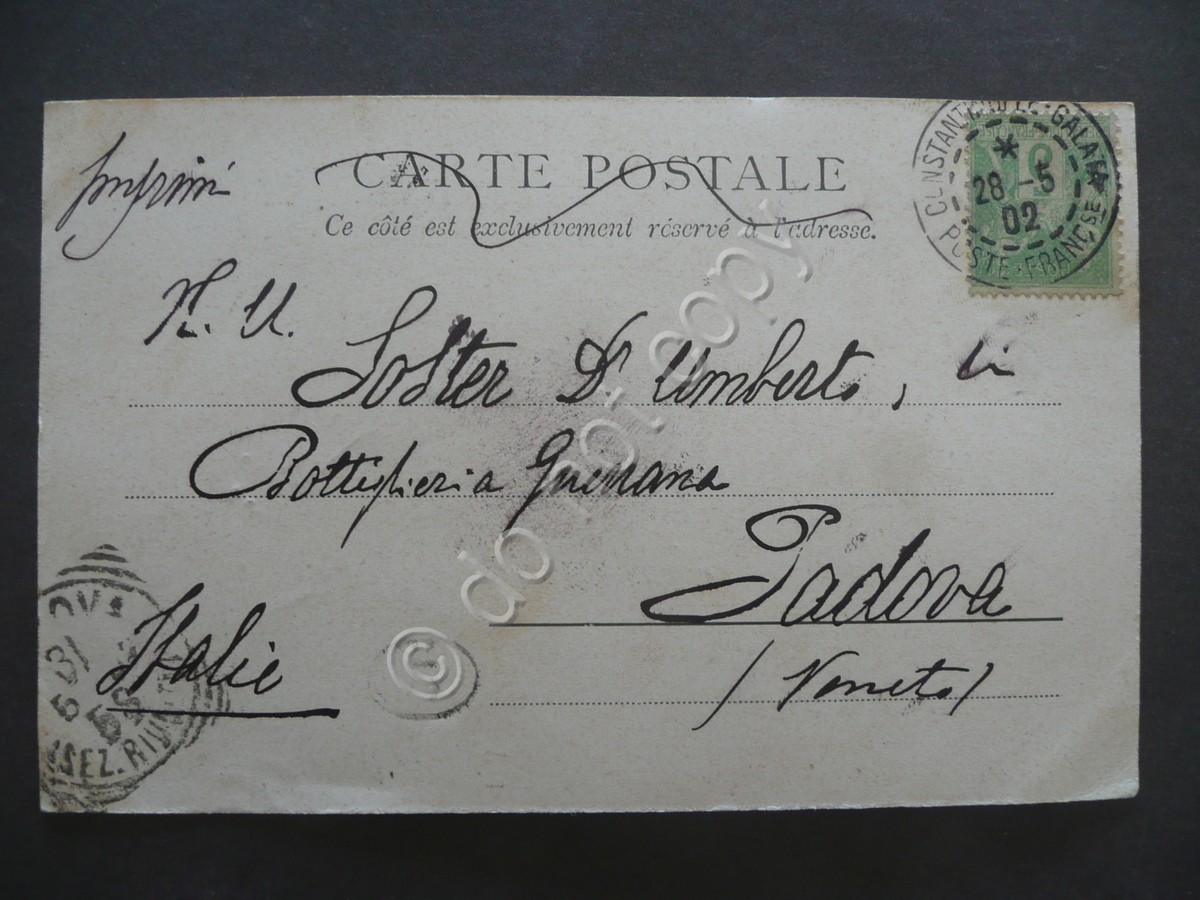 Imprimé
CARTE POSTALE
Ce côté est exclusivement réservé à l'adresse.
CONSTANTINOPLE-GALATA
28 -5
02
POSTE FRANÇSE
N. U.
Soster Dr Umberto,
Bottiglieria
Padova
(Veneto)
Italie
SEZ. RIU
© do not copy